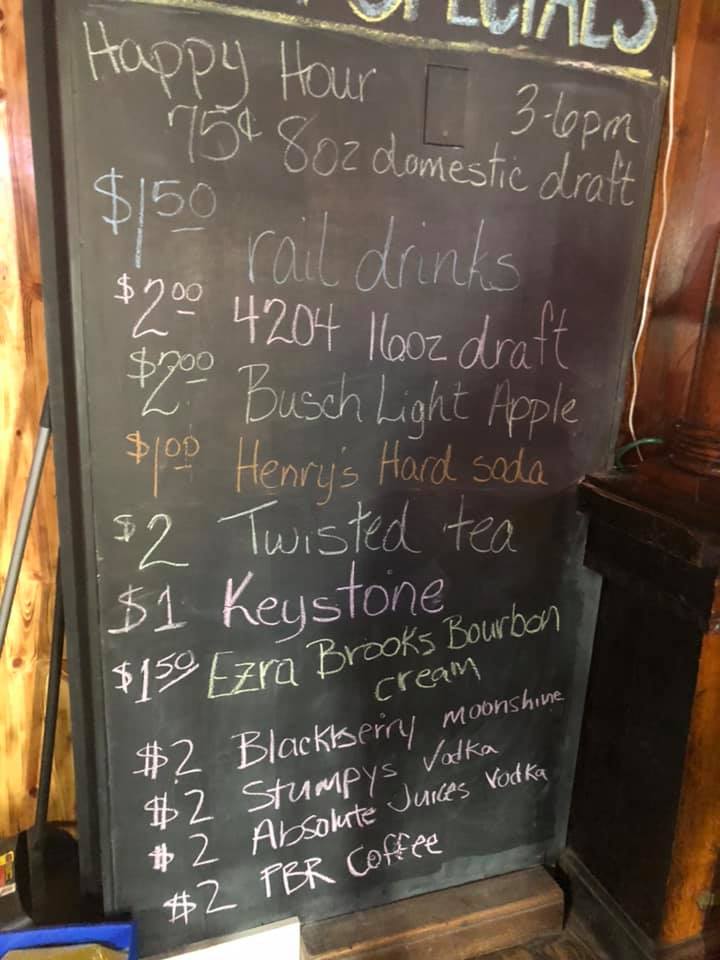 SPECIALS
Happy Hour 3-6pm
75¢ 8oz domestic draft
$1.50 rail drinks
$2.00 4204 16oz draft
$2.00 Busch Light Apple
$1.00 Henry's Hard soda
$2 Twisted tea
$1 Keystone
$1.50 Ezra Brooks Bourbon
cream
$2 Blackberry moonshine
$2 Stumpys Vodka
$2 Absolute Juices Vodka
$2 PBR Coffee